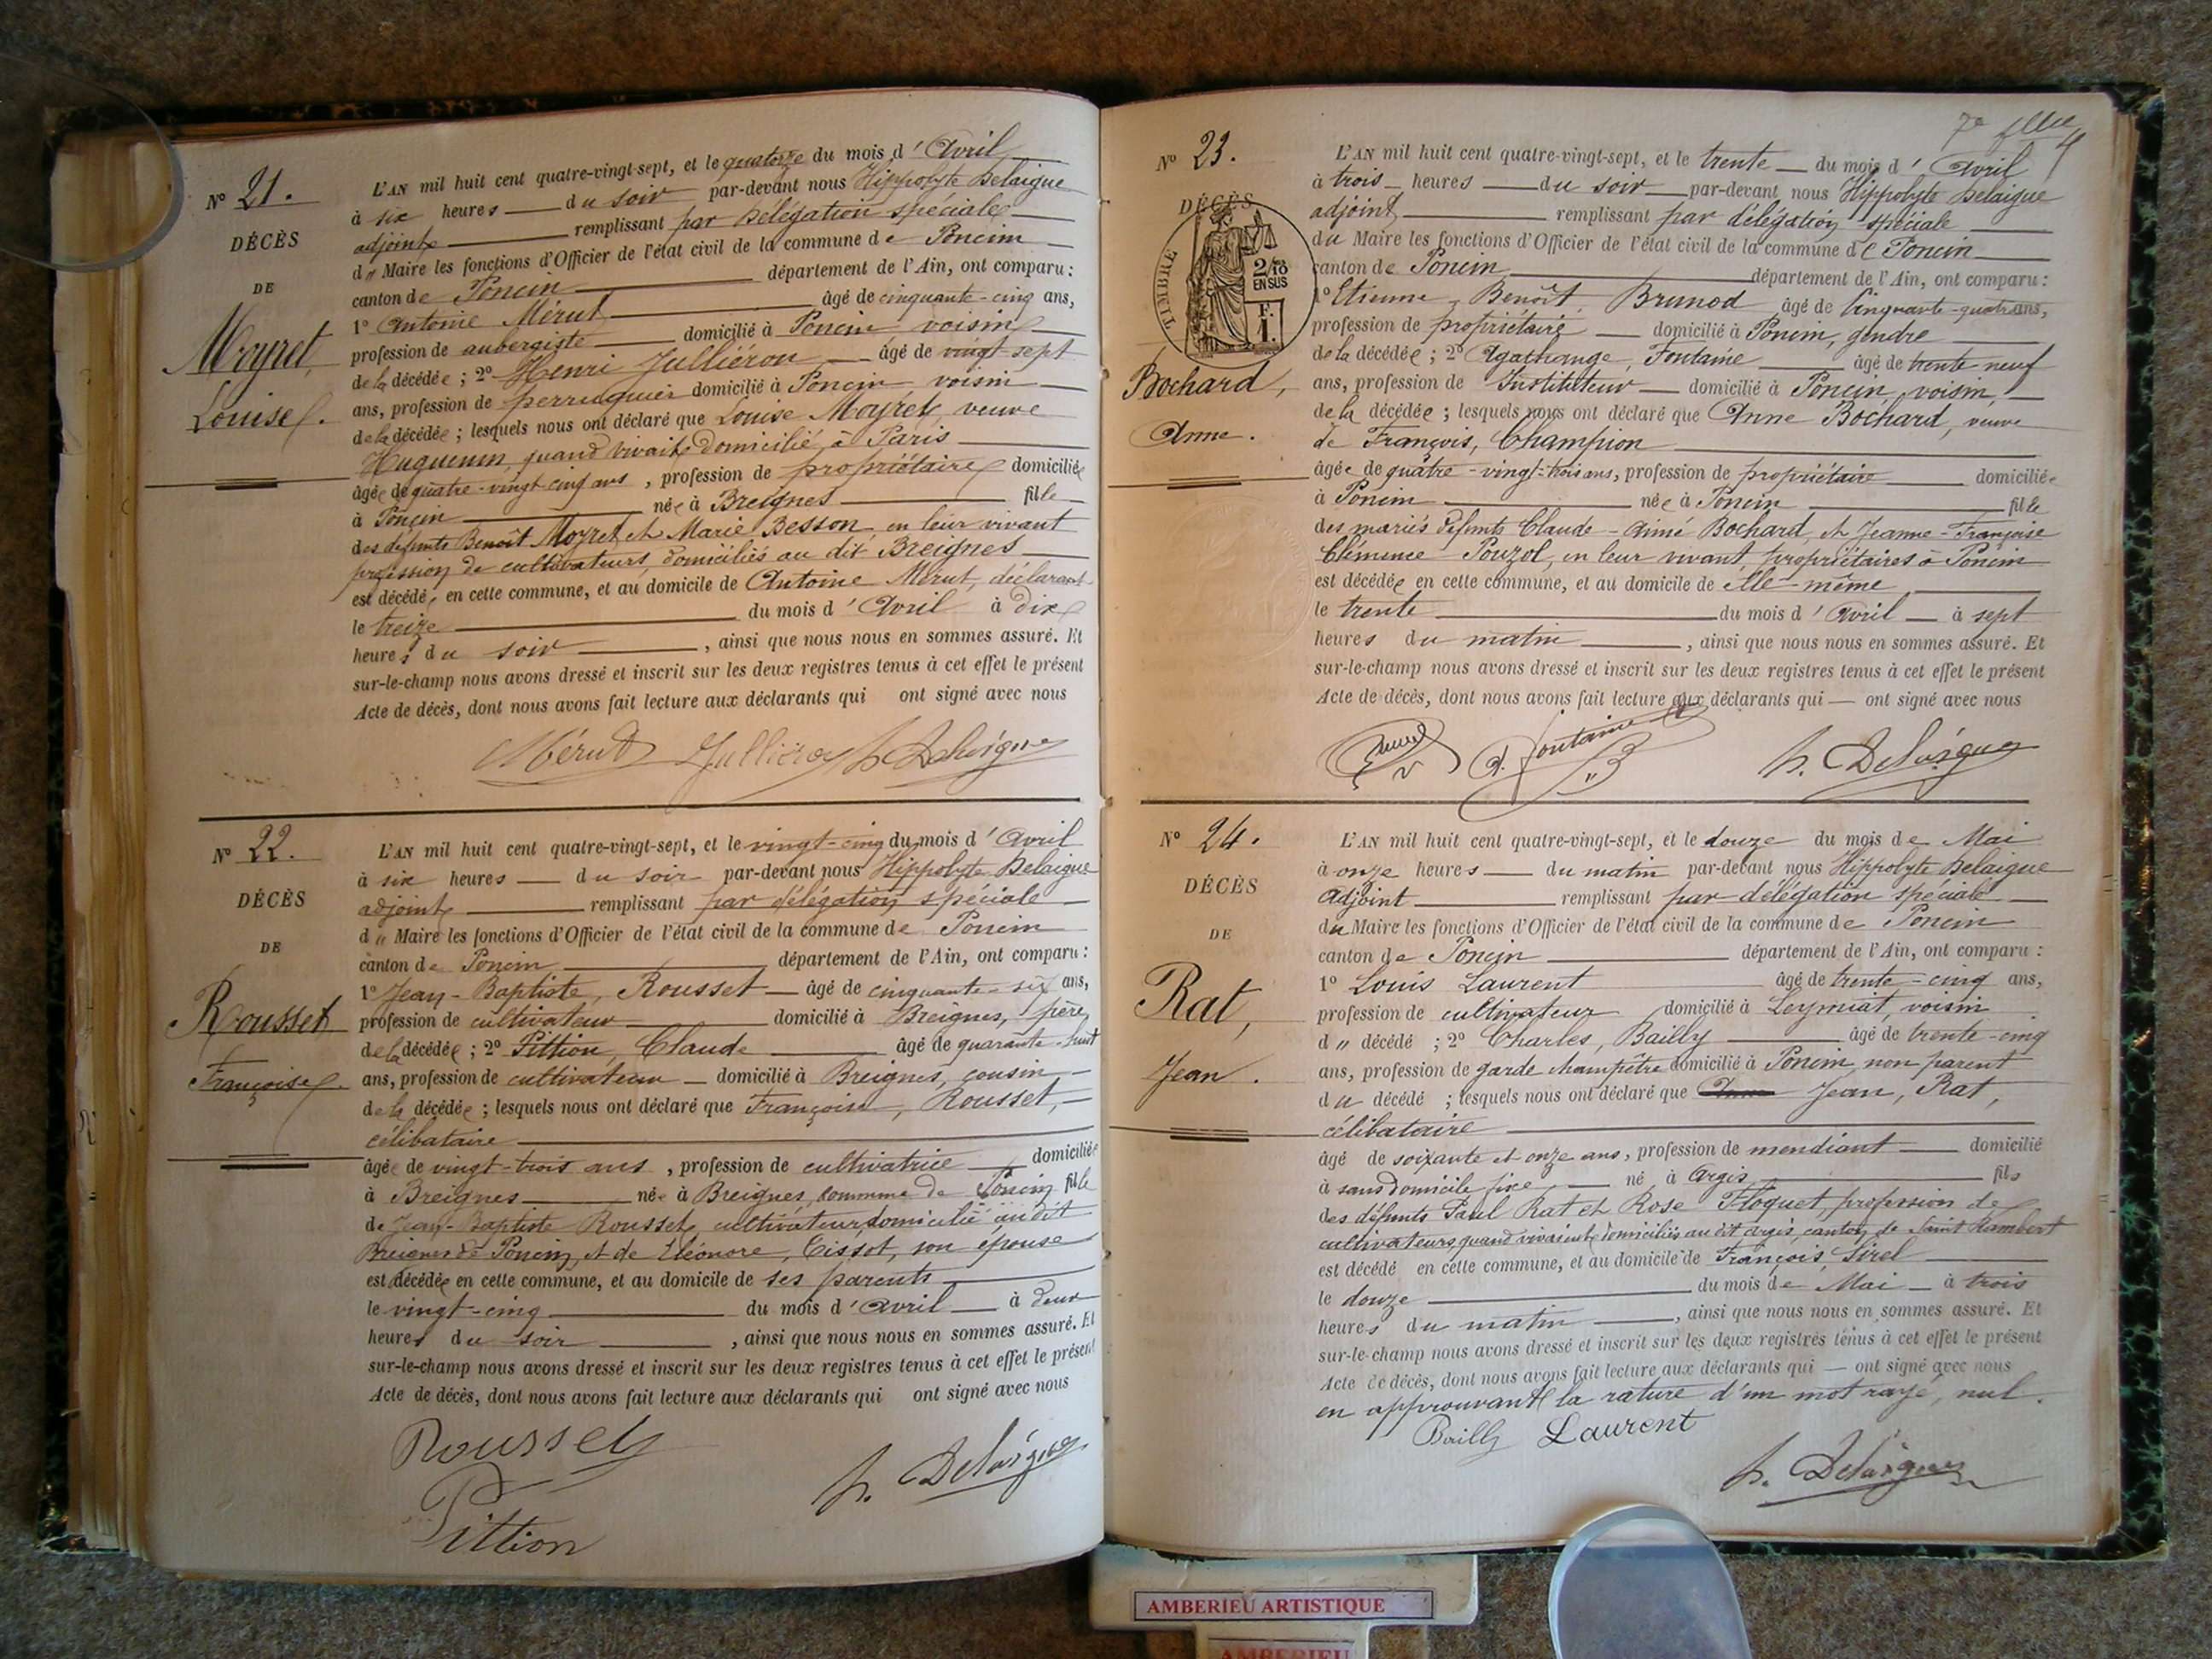 No 21.
DÉCÈS
DE
Moyret,
Louise.
L'AN mil huit cent quatre-vingt-sept, et le quatorze du mois d'Avril
à six heures du soir par-devant nous Hippolyte Delaigue
adjoint remplissant par délégation spéciale
du Maire les fonctions d'Officier de l'état civil de la commune de Poncin
canton de Poncin département de l'Ain, ont comparu :
1o Antoine Mérut âgé de cinquante-cinq ans,
profession de aubergiste domicilié à Poncin voisin
de la décédée ; 2o Henri Julliéron âgé de vingt-sept
ans, profession de perruquier domicilié à Poncin voisin
de la décédée ; lesquels nous ont déclaré que Louise Moyret, veuve
Huguenin, quand vivait domicilié à Paris
âgée de quatre-vingt cinq ans, profession de propriétaire domiciliée
à Poncin née à Breignes fille
des défunts Benoît Moyret et Marie Besson en leur vivant
profession de cultivateurs, domiciliés au dit Breignes
est décédée en cette commune, et au domicile de Antoine Mérut, déclarant
le treize du mois d'Avril à dix
heures du soir, ainsi que nous nous en sommes assuré. Et
sur-le-champ nous avons dressé et inscrit sur les deux registres tenus à cet effet le présent
Acte de décès, dont nous avons fait lecture aux déclarants qui ont signé avec nous
Mérut Julliéron h. Delaigue
No 22.
DÉCÈS
DE
Rousset
Françoise.
L'AN mil huit cent quatre-vingt-sept, et le vingt-cinq du mois d'Avril
à six heures du soir par-devant nous Hippolyte Delaigue
adjoint remplissant par délégation spéciale
du Maire les fonctions d'Officier de l'état civil de la commune de Poncin
canton de Poncin département de l'Ain, ont comparu :
1o Jean-Baptiste, Rousset âgé de cinquante-six ans,
profession de cultivateur domicilié à Breignes, père
de la décédée ; 2o Pittion, Claude âgé de quarante-huit
ans, profession de cultivateur domicilié à Breignes, cousin
de la décédée ; lesquels nous ont déclaré que Françoise, Rousset,
célibataire
âgée de vingt-trois ans, profession de cultivatrice domiciliée
à Breignes née à Breignes, commune de Poncin fille
de Jean-Baptiste Rousset, cultivateur, domicilié au dit
Breignes de Poncin, et de Eléonore, Tissot, son épouse
est décédée en cette commune, et au domicile de ses parents
le vingt-cinq du mois d'avril à deux
heures du soir, ainsi que nous nous en sommes assuré. Et
sur-le-champ nous avons dressé et inscrit sur les deux registres tenus à cet effet le présent
Acte de décès, dont nous avons fait lecture aux déclarants qui ont signé avec nous
Rousset
h. Delaigue
Pittion
No 23.
DÉCÈS
TIMBRE
2/10
EN SUS
F.
1.
Bochard,
Anne.
L'AN mil huit cent quatre-vingt-sept, et le trente du mois d'Avril
à trois heures du soir par-devant nous Hippolyte Delaigue
adjoint remplissant par délégation spéciale
du Maire les fonctions d'Officier de l'état civil de la commune de Poncin
canton de Poncin département de l'Ain, ont comparu :
1o Etienne, Benoît, Brunod âgé de Cinquante-quatre ans,
profession de propriétaire domicilié à Poncin, gendre
de la décédée ; 2o Agathange, Fontaine âgé de trente neuf
ans, profession de Instituteur domicilié à Poncin, voisin,
de la décédée ; lesquels nous ont déclaré que Anne Bochard, veuve
de François, Champion
âgée de quatre-vingt-trois ans, profession de propriétaire domiciliée
à Poncin née à Poncin fille
des mariés défunts Claude-Aimé Bochard, et Jeanne-Françoise
Clémence Pouzol, en leur vivant, propriétaires à Poncin
est décédée en cette commune, et au domicile de elle-même
le trente du mois d'Avril à sept
heures du matin, ainsi que nous nous en sommes assuré. Et
sur-le-champ nous avons dressé et inscrit sur les deux registres tenus à cet effet le présent
Acte de décès, dont nous avons fait lecture aux déclarants qui — ont signé avec nous
A. Fontaine h. Delaigue
No 24.
DÉCÈS
DE
Rat,
Jean.
L'AN mil huit cent quatre-vingt-sept, et le douze du mois de Mai
à onze heures du matin par-devant nous Hippolyte Delaigue
adjoint remplissant par délégation spéciale
du Maire les fonctions d'Officier de l'état civil de la commune de Poncin
canton de Poncin département de l'Ain, ont comparu :
1o Louis Laurent âgé de trente-cinq ans,
profession de cultivateur domicilié à Leymiat, voisin
d" décédé ; 2o Charles, Bailly âgé de trente-cinq
ans, profession de garde champêtre domicilié à Poncin, non parent
du décédé ; lesquels nous ont déclaré que Jean, Rat,
célibataire
âgé de soixante et onze ans, profession de mendiant domicilié
à sans domicile fixe, né à Argis fils
des défunts Paul Rat et Rose Floquet, profession de
cultivateurs, quand vivaient domiciliés au dit Argis, canton de Saint Rambert
est décédé en cette commune, et au domicile de François, Sirel
le douze du mois de Mai à trois
heures du matin, ainsi que nous nous en sommes assuré. Et
sur-le-champ nous avons dressé et inscrit sur les deux registres tenus à cet effet le présent
Acte de décès, dont nous avons fait lecture aux déclarants qui — ont signé avec nous
en approuvant la rature d'un mot rayé, nul.
Bailly Laurent
h. Delaigue
AMBERIEU ARTISTIQUE
AMBERIEU